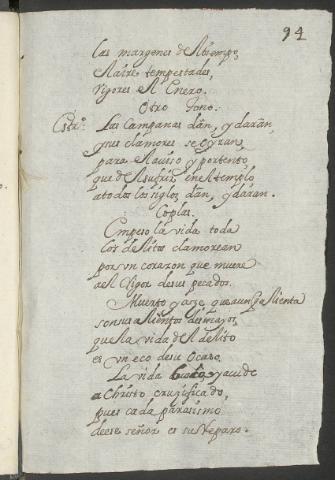 94
las margenes del tiempo,
el aire tempestades,
rigores el Enero.
Otro Tono.
Estrº. Las Campanas dãn, y darãn,
y sus clamores se oyran
para el aviso y portento,
que de sufrir en el templo
a todos los siglos dãn, y daran.
Coplas.
Empeso la vida toda
los delitos clamorean
por un corazon que muere
del rigor de sus pecados.
Muerto yase, que aunq alienta
son sus alientos desmayos,
que la vida del delito
es un eco de su Ocaso.
La vida y acude
a Christo crusificado,
pues cada parasismo
de ese señor es su Reparo.